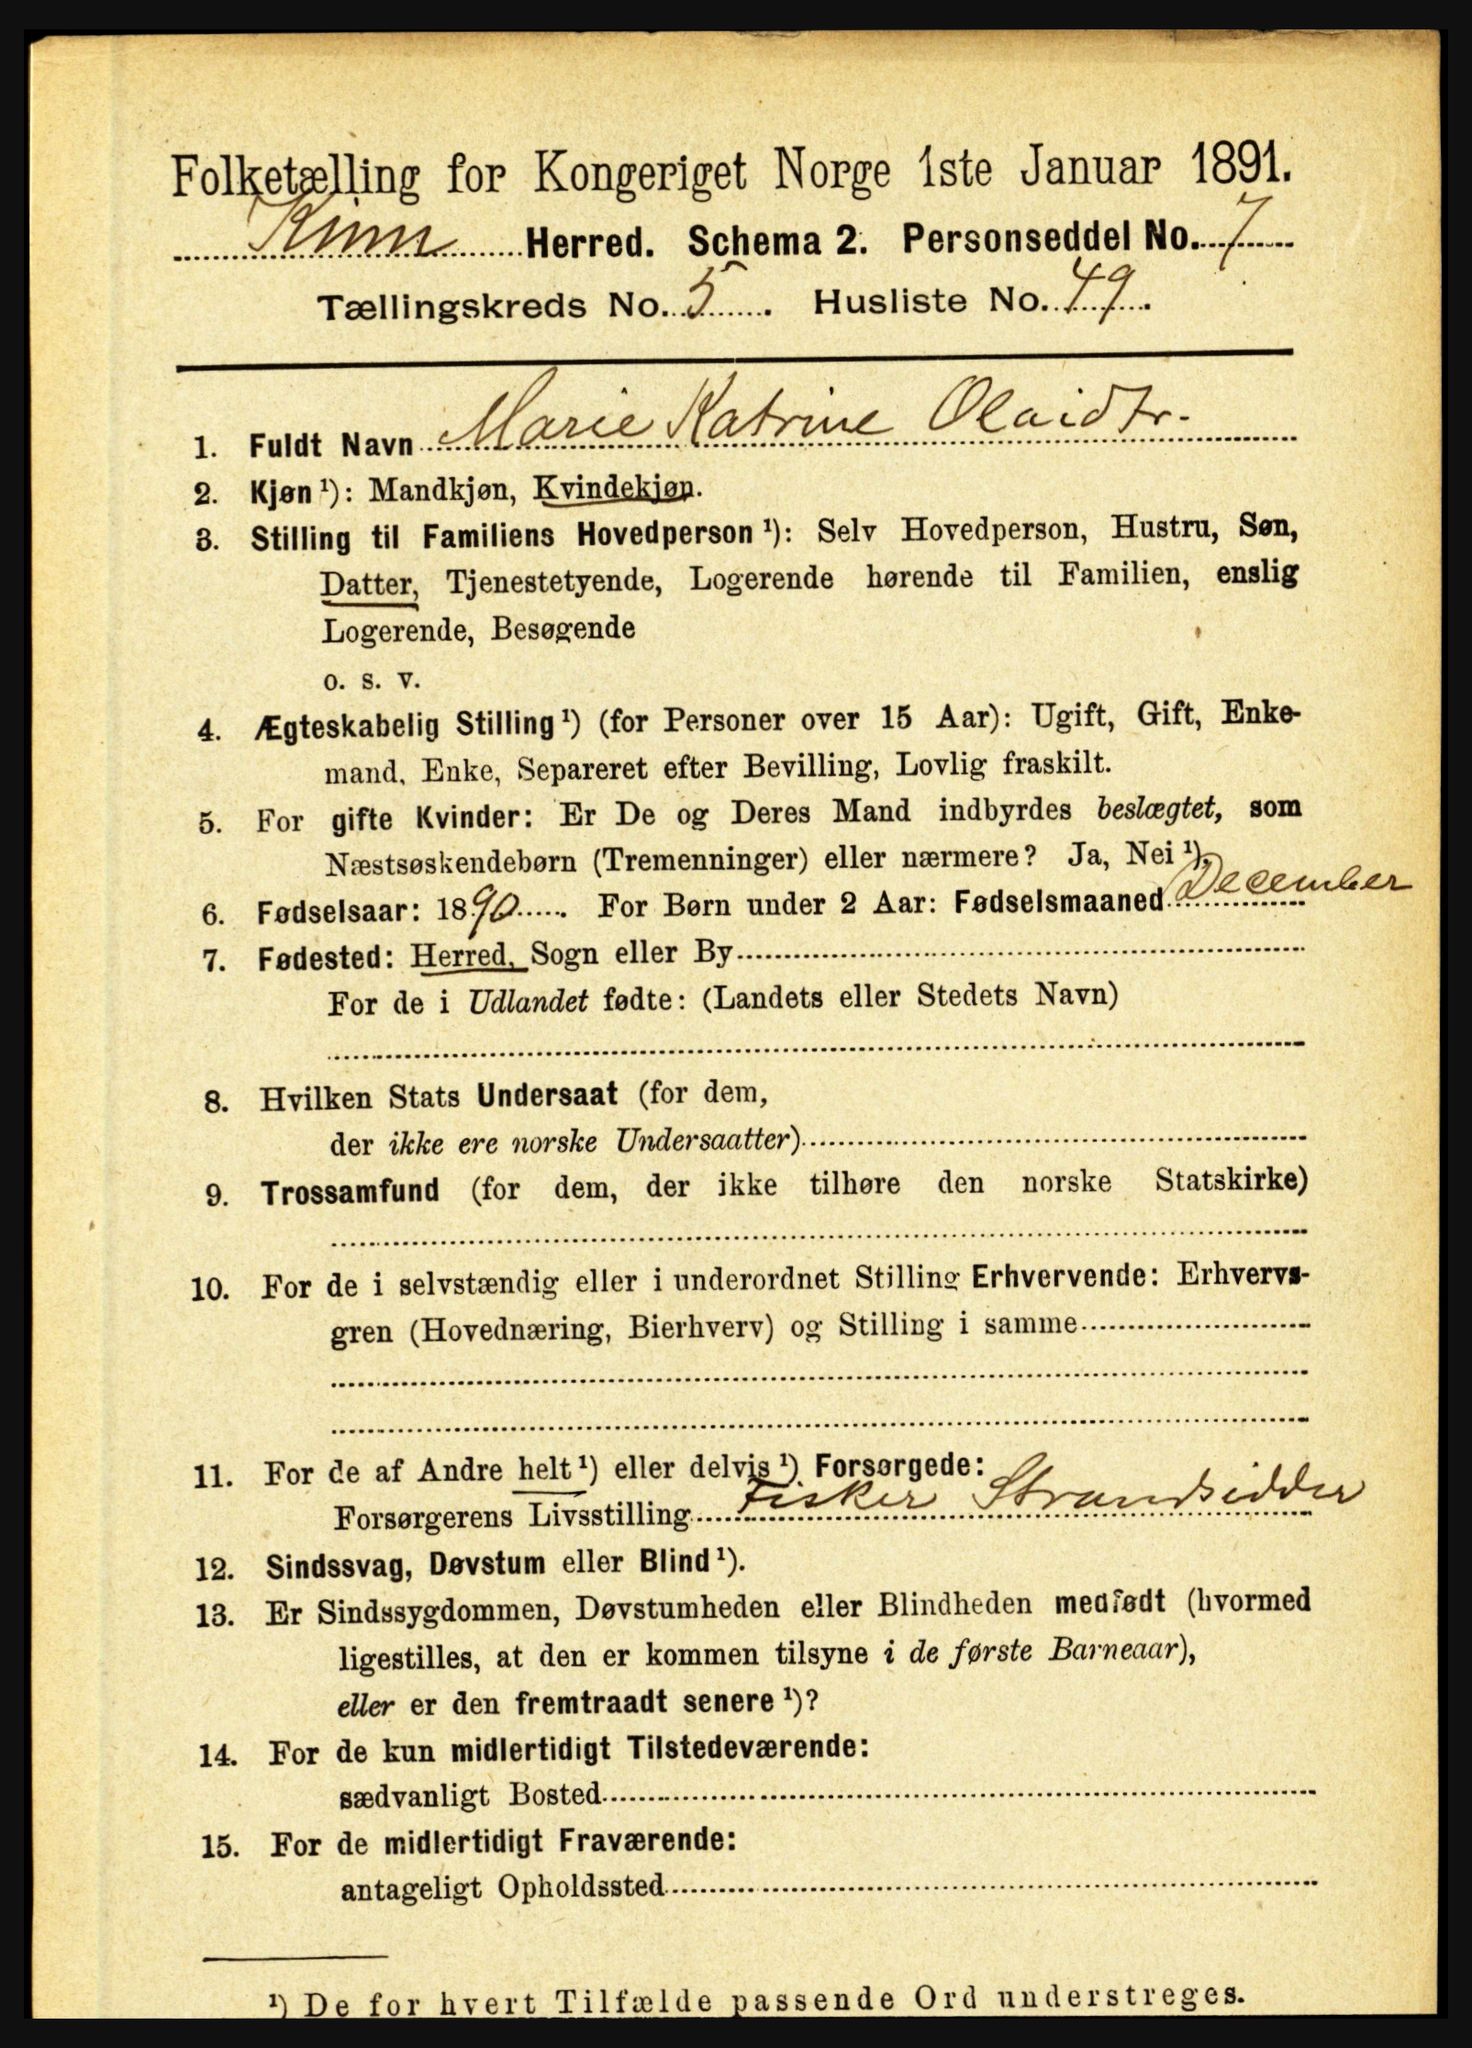 Folketælling for Kongeriget Norge 1ste Januar 1891.
Kinn Herred. Schema 2. Personseddel No. 7
Tællingskreds No. 5. Husliste No. 49.
1. Fuldt Navn Marie Katrine Olaidtr.
2. Kjøn ¹): Mandkjøn, Kvindekjøn.
3. Stilling til Familiens Hovedperson ¹): Selv Hovedperson, Hustru, Søn,
Datter, Tjenestetyende, Logerende hørende til Familien, enslig
Logerende, Besøgende
o. s. v.
4. Ægteskabelig Stilling ¹) (for Personer over 15 Aar): Ugift, Gift, Enke-
mand, Enke, Separeret efter Bevilling, Lovlig fraskilt.
5. For gifte Kvinder: Er De og Deres Mand indbyrdes beslægtet, som
Næstsøskendebørn (Tremenninger) eller nærmere? Ja, Nei ¹).
6. Fødselsaar: 1890. For Børn under 2 Aar: Fødselsmaaned December
7. Fødested: Herred, Sogn eller By
For de i Udlandet fødte: (Landets eller Stedets Navn)
8. Hvilken Stats Undersaat (for dem,
der ikke ere norske Undersaatter)
9. Trossamfund (for dem, der ikke tilhøre den norske Statskirke)
10. For de i selvstændig eller i underordnet Stilling Erhvervende: Erhvervs-
gren (Hovednæring, Bierhverv) og Stilling i samme
11. For de af Andre helt ¹) eller delvis ¹) Forsørgede:
Forsørgerens Livsstilling Fisker Strandsidder
12. Sindssvag, Døvstum eller Blind ¹).
13. Er Sindssygdommen, Døvstumheden eller Blindheden medfødt (hvormed
ligestilles, at den er kommen tilsyne i de første Barneaar),
eller er den fremtraadt senere ¹)?
14. For de kun midlertidigt Tilstedeværende:
sædvanligt Bosted
15. For de midlertidigt Fraværende:
antageligt Opholdssted
¹) De for hvert Tilfælde passende Ord understreges.